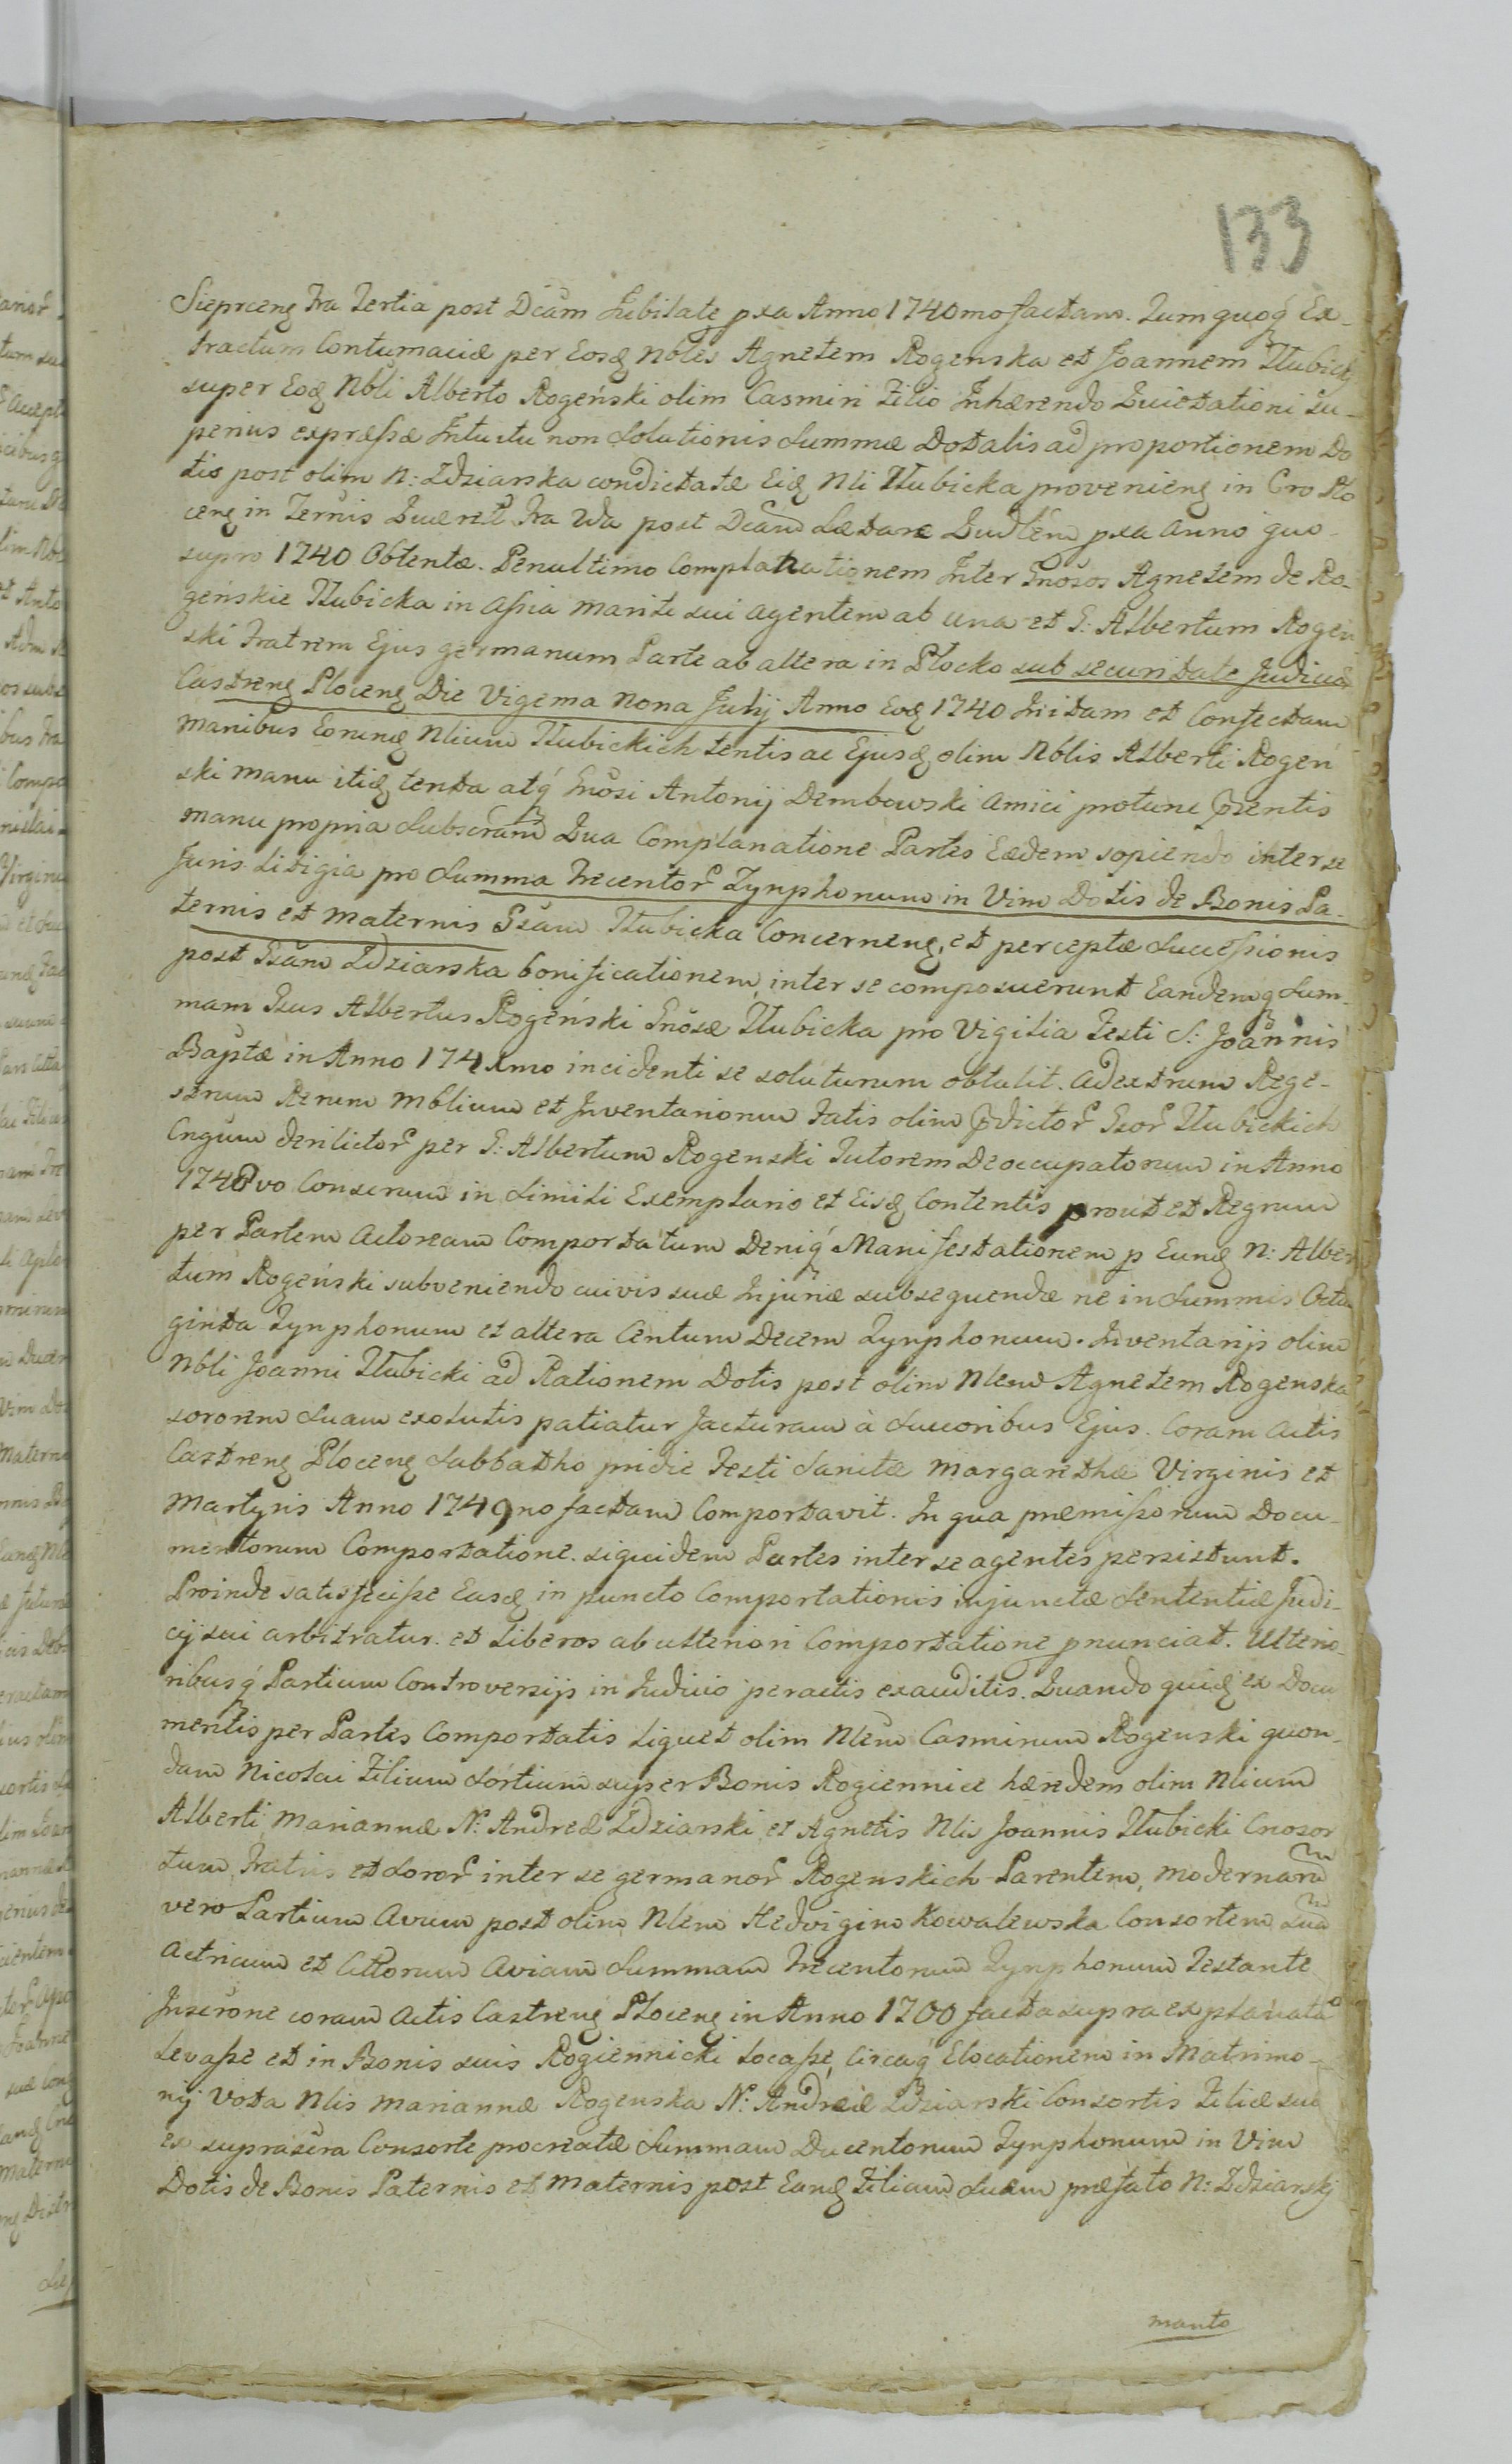 133
Sieprceng Fra Tertia post Dcãm Jubilate pxa Anno 1740mo factam. Tum quoq́ Ex-
tractum Contumaciæ per Eosq Nbles Agnetem Rogenska et Joannem Słubickj
super Eoq Nbli Alberto Rogeński olim Casmiri Filio Inhærendo Quietationi Su-
perius expræssæ Intuitu non Solutionis Summæ Dotalis ad proportionem Do
tis post olim N: Zdziarska condictatæ Eiq Nli Słubicka provenieng in Cro Plo
ceng in Ternis Quæret Fra 2da post Dcam Lætare Qudlem pxa anno quo-
supro 1740 Obtentæ. Penultimo Complanationem Inter Gnosos Agnetem de Ro-
geńskie Słubicka in Assia mariti sui agentem ab una et G: Albertum Rogeń
ski Fratrem Ejus germanum Parte ab altera in Płocko sub securitate Judicij
Castreng Ploceng Die Vigema Nona Julij Anno Eoq 1740 Initam et Confectam
manibus Eorunq Nlium Słubickich tentis ac Ejusq olim Nblis Alberti Rogeń
ski manu itiq tenta atq́ Gnosi Antonij Dembowski Amici protunc pzentis
manu propria Subscram Qua Complanatione Partes Eædem sopiendo inter se
Juris Litigia pro Summa Trecentor Tynphonum in Vim Dotis de Bonis Pa-
ternis et maternis Gsam Słubicka Concerneng, et perceptæ Successionis
post Gsam Zdziarska bonificationem inter se composuerunt Eandemq Sum-
mam Gsus Albertus Rogeński Gnosæ Słubicka pro Vigilia Festi S: Joannis
Baptæ in Anno 1741mo incidenti se soluturum obtulit. Ad extrum Rege-
strum Rerum mblium et Inventariorum Fatis olim pdictor Gsor Słubickich
Cngum derilictor per G: Albertum Rogenski Tutorem Deoccupatorum in Anno
1748vo Conscrum in Simili Exemplario et Eisq Contentis prout et Regrum
per Partem Actoream Comportatum Deniq́ Manifestationem p Eunq N: Alber
tum Rogeński subveniendo cuivis suæ Injuriæ subsequendæ ne in Summis Octua
ginta Tynphonum et altera Centum Decem Tynphonum. Inventarijs olim
Nbli Joanni Słubicki ad Rationem Dotis post olim Nlem Agnetem Rogenska
sororem Suam exolutis patiatur Jacturam à Succoribus Ejus. Coram Actis
Castreng Ploceng Sabbatho pridie Festi Sanctæ Margarethæ Virginis et
Martyris Anno 1749no factam Comportavit. In qua præmissorum Docu-
mentorum Comportatione. siquidem Partes inter se agentes persistunt.
Proinde satisfecisse Easq in puncto Comportationis injunctæ Sententiæ Judi-
cij sui arbitratur. et Liberos ab ulteriori Comportatione pnunciat. Ulterio-
ribusq́ Partium Controversijs in Judicio peractis exauditis. Quando quiq ex Docu
mentis per Partes Comportatis liquet olim Nlem Casmirum Rogenski quon-
dam Nicolai Filium Sortium super Bonis Rogiennice hæredem olim Nlium
Alberti Mariannæ N: Andreæ Zdziarski et Agnetis Nlis Joannis Słubicki Cnosor
tum, Fratris et Soror inter se germanor Rogenskich Parentem, modernaru
vero Partium Avum post olim Nlem Hedvigim Kowalewska Consortem Sua
Actricum et Cittorum Aviam Summam Trecentorum Tynphonum Testante
Inscrone coram Actis Castreng Ploceng in Anno 1700 facta supra explanata
Levasse et in Bonis suis Rogiennicki locasse, Circaq́ Elocationem in Matrimo-
nij Vota Nlis Mariannæ Rogenska N: Andreæ Zdziarski Consortis Filiæ suæ
ex suprascra Consorte procreatæ Summam Ducentorum Tynphonum in Vim
Dotis de Bonis Paternis et Maternis post Eanq Filiam Suam præfato N: Zdziarskj
manto